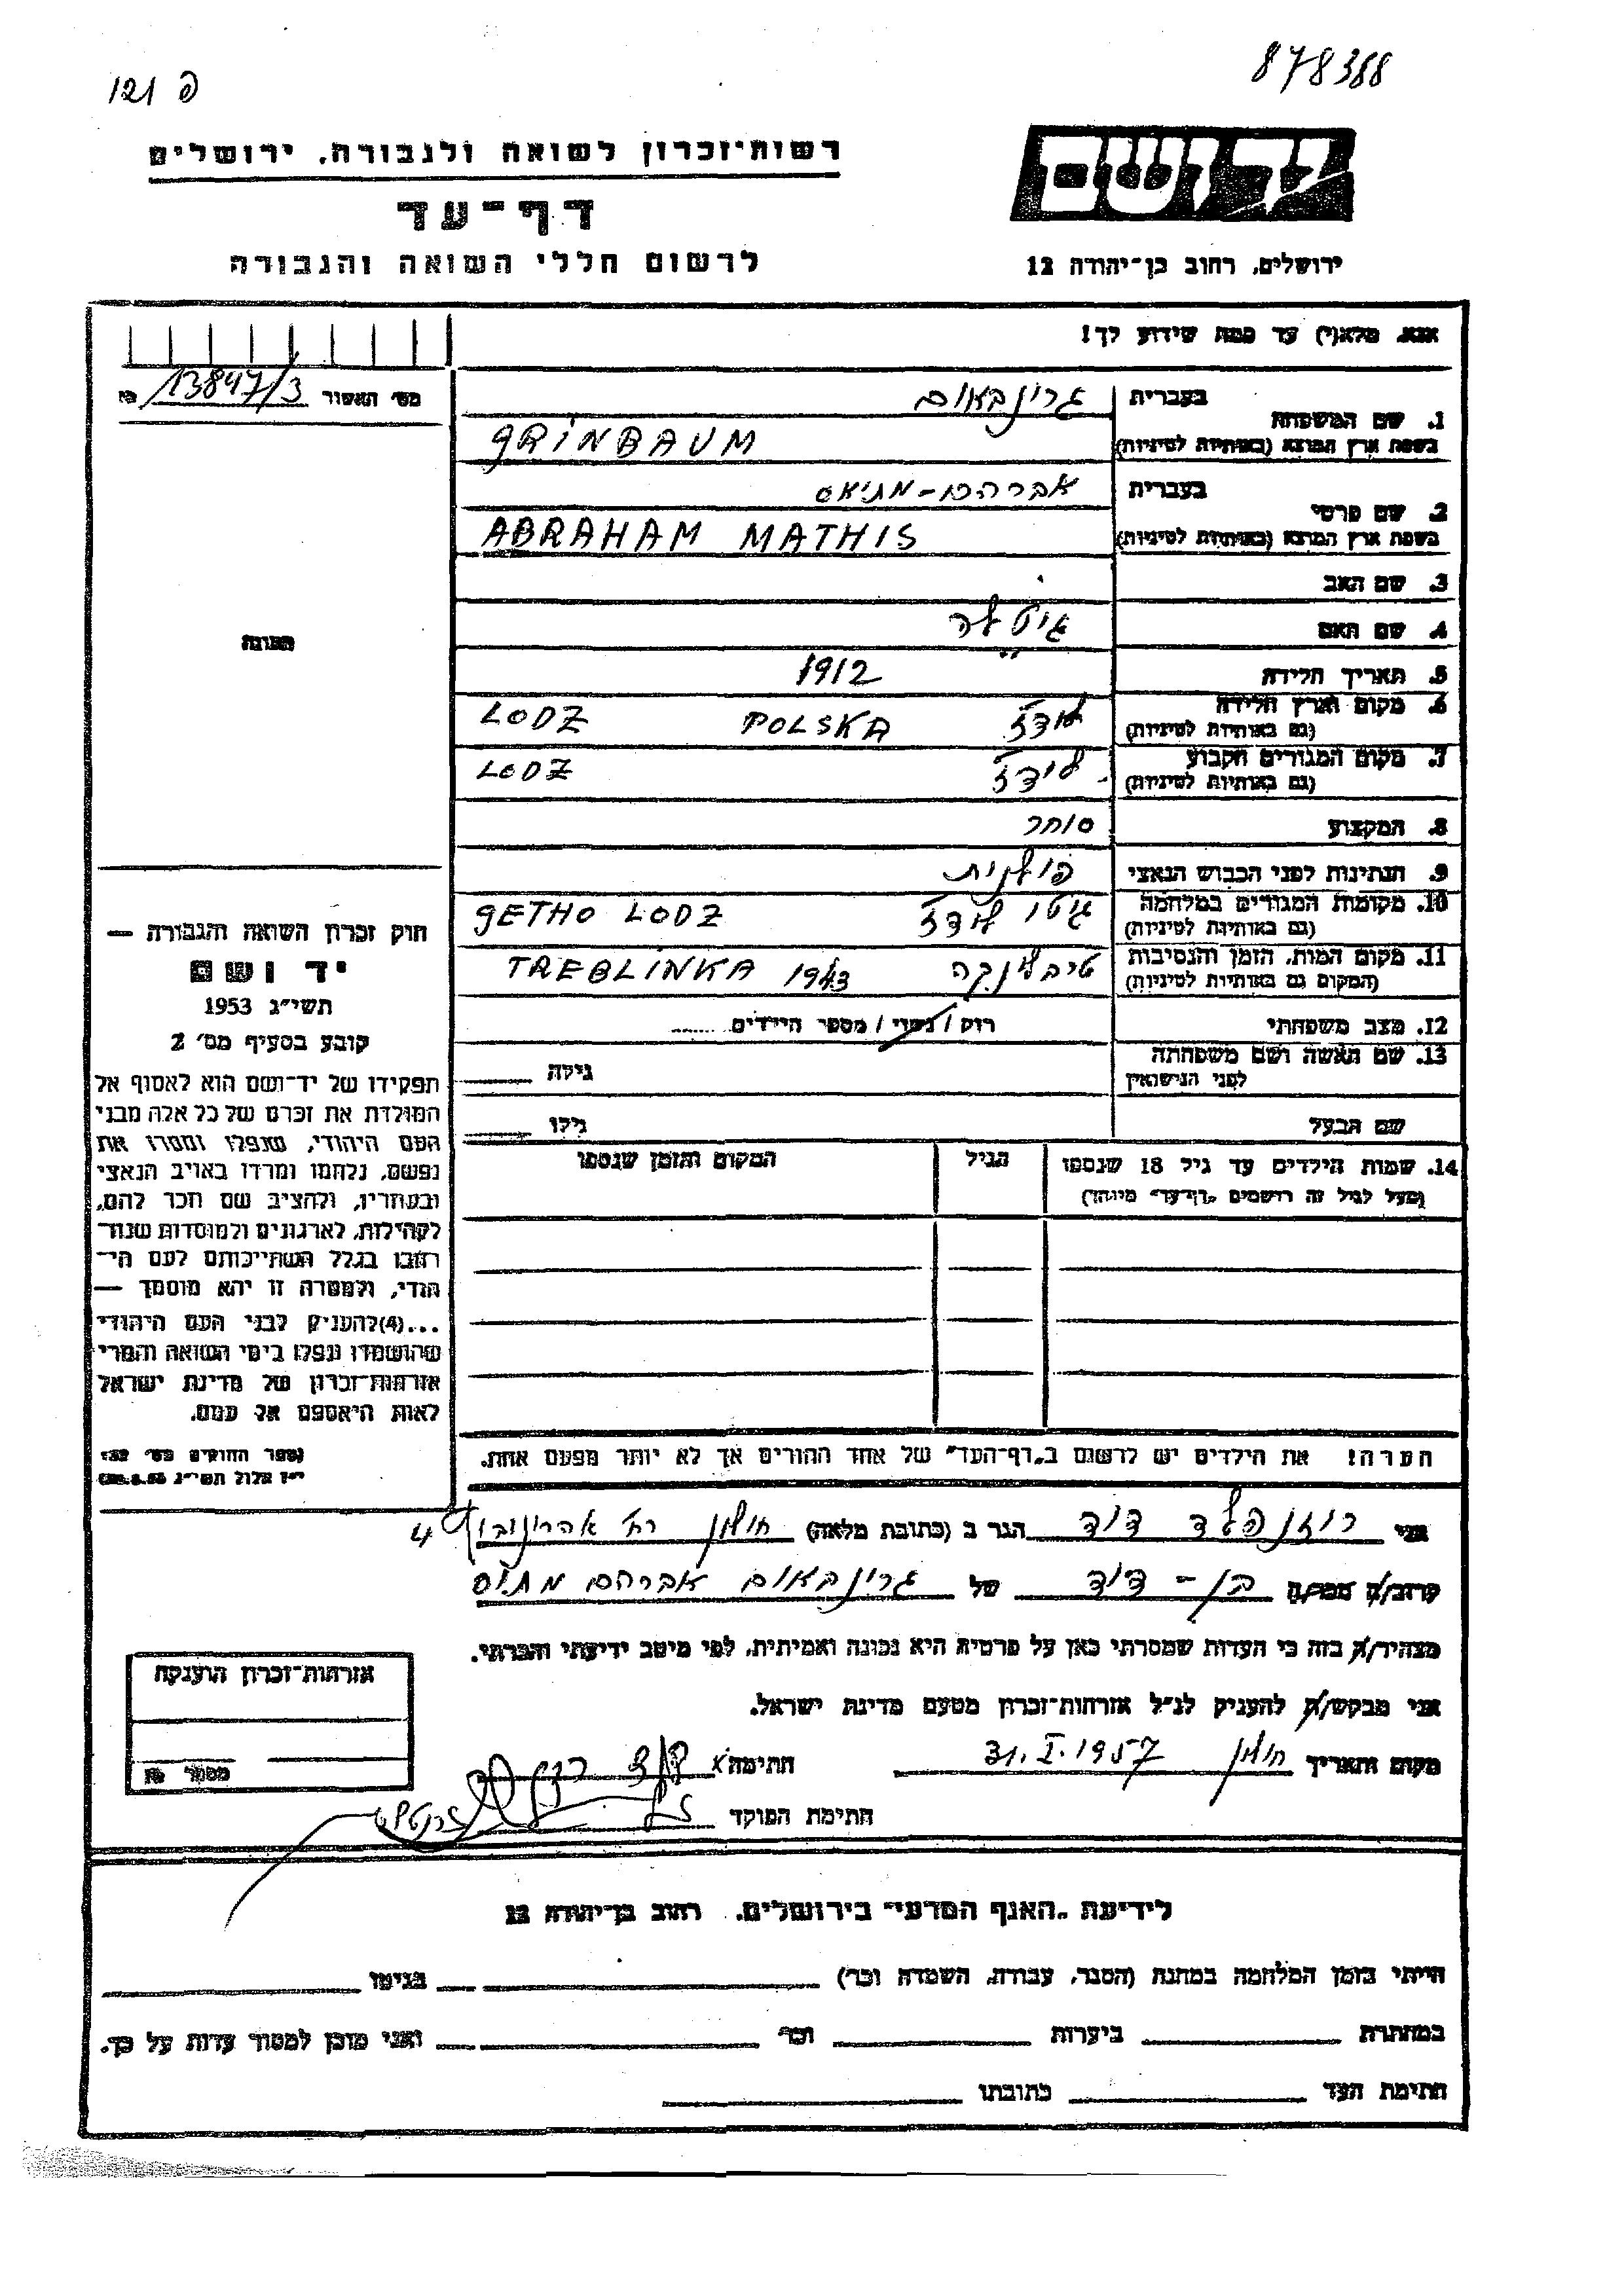 878388
פ 121
יד ושם
ירושלים, רחוב בן־יהודה 12
רשות־זכרון לשואה ולגבורה, ירושלים
דף־עד
לרשום חללי השואה והגבורה
אנא, מלא(י) עד כמה שידוע לך!
מס׳ האשור 13847/3
1. שם המשפחה
בעברית גרינבאום
בשפת ארץ המוצא (באותיות לטיניות) GRINBAUM
2. שם פרטי
בעברית אברהם - מתיאס
בשפת ארץ המוצא (באותיות לטיניות) ABRAHAM MATHIS
3. שם האב
4. שם האם גיטלה
5. תאריך הלידה 1912
6. מקום וארץ הלידה לודז POLSKA LODZ
(גם באותיות לטיניות)
7. מקום המגורים הקבוע לודז LODZ
(גם באותיות לטיניות)
8. המקצוע סוחר
9. הנתינות לפני הכבוש הנאצי פולנית
10. מקומות המגורים במלחמה גיטו לודז GETHO LODZ
(גם באותיות לטיניות)
11. מקום המות, הזמן והנסיבות טרבלינקה TREBLINKA 1943
(המקום גם באותיות לטיניות)
12. מצב משפחתי רוק / נשוי / מספר הילדים
13. שם האשה ושם משפחתה
לפני הנישואין גילה
שם הבעל גילו
14. שמות הילדים עד גיל 18 שנספו הגיל המקום והזמן שנספו
(מעל לגיל זה רושמים „דף־עד" מיוחד)
הערה! את הילדים יש לרשום ב„דף־העד" של אחד ההורים אך לא יותר מפעם אחת.
תמונה
חוק זכרון השואה והגבורה —
יד ושם
תשי״ג 1953
קובע בסעיף מס׳ 2
תפקידו של יד־ושם הוא לאסוף אל
המולדת את זכרם של כל אלה מבני
העם היהודי, שנפלו ומסרו את
נפשם, נלחמו ומרדו באויב הנאצי
ובעוזריו, ולהציב שם וזכר להם,
לקהילות, לארגונים ולמוסדות שנח־
רבו בגלל השתייכותם לעם הי־
הודי, ולמטרה זו יהא מוסמך —
...(4) להעניק לבני העם היהודי
שהושמדו ונפלו בימי השואה והמרי
אזרחות־זכרון של מדינת ישראל
לאות היאספם אל עמם.
(ספר החוקים מס׳ 132
י״ז אלול תשי״ג
אני רוזנפלד דוד הגר ב (כתובת מלאה) חולון רח׳ אהרונוביץ 4
קרוב/ה בן - דוד של גרינבאום אברהם מתיס
מצהיר/ה בזה כי העדות שמסרתי כאן על פרטיה היא נכונה ואמיתית, לפי מיטב ידיעתי והכרתי.
אני מבקש/ת להעניק לנ״ל אזרחות־זכרון מטעם מדינת ישראל.
מקום ותאריך חולון 31.I.1957 חתימה
חתימת הפוקד
אזרחות־זכרון הוענקה
מספר
לידיעת „האגף המדעי״ בירושלים, רחוב בן־יהודה 12
הייתי בזמן המלחמה במחנה (הסגר, עבודה, השמדה וכו׳) בגיטו
במחתרת ביערות וכו׳ ואני מוכן למסור עדות על כך.
חתימת העד כתובתו